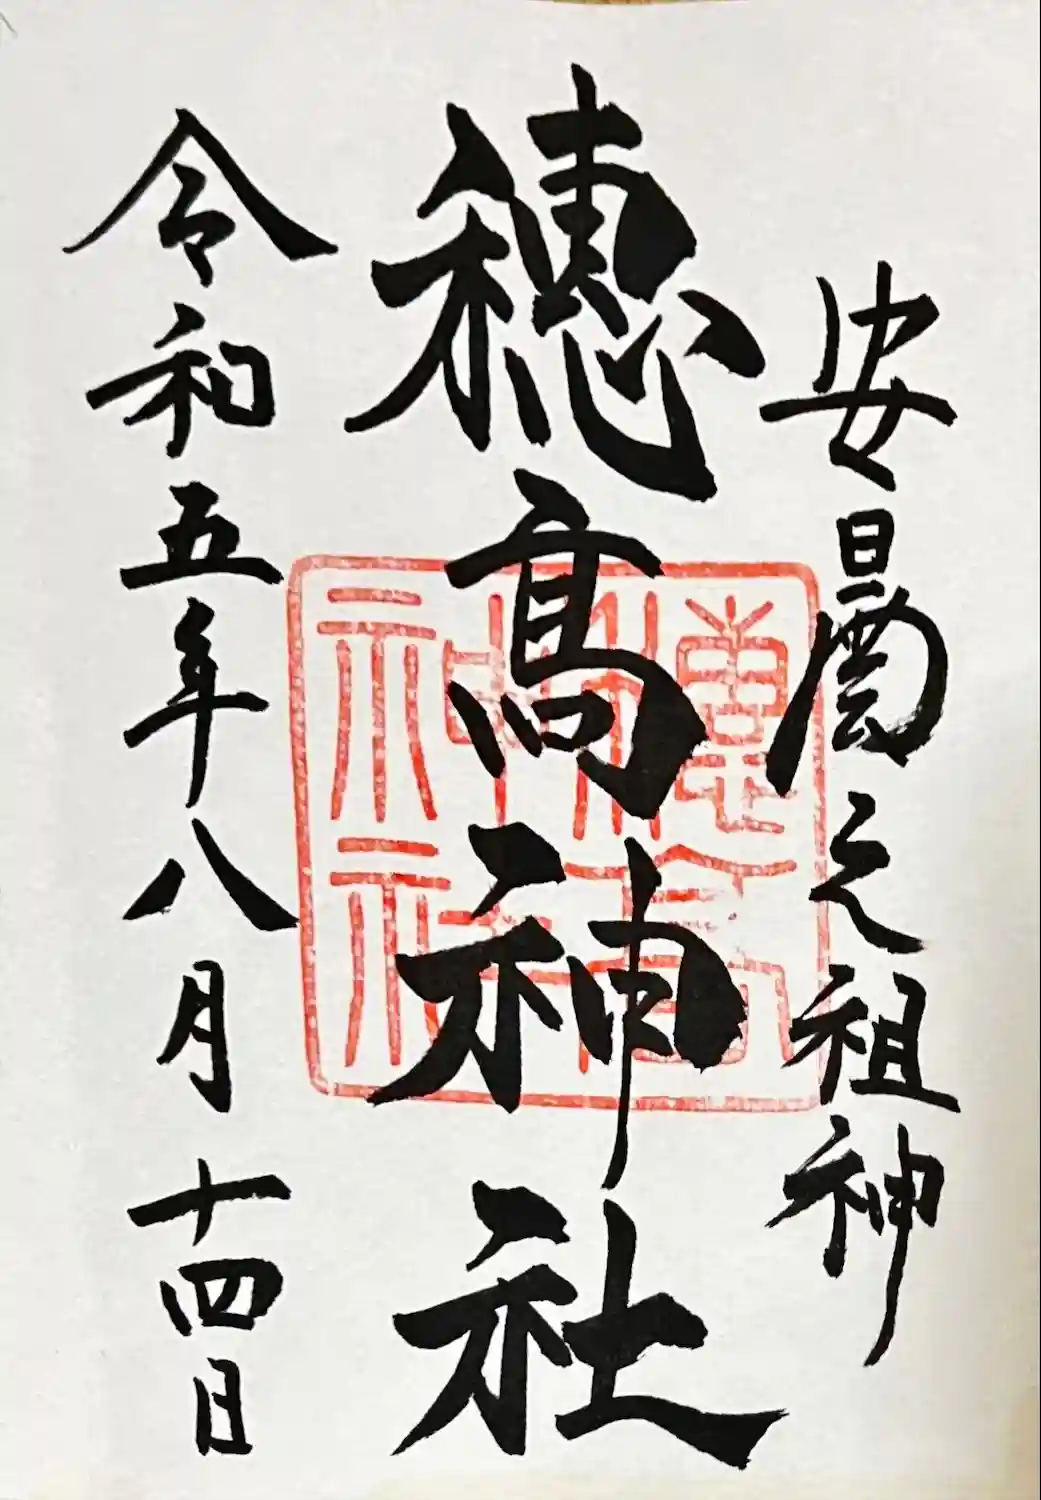 安曇之祖神
穂髙神社
穂高神社
令和五年八月十四日